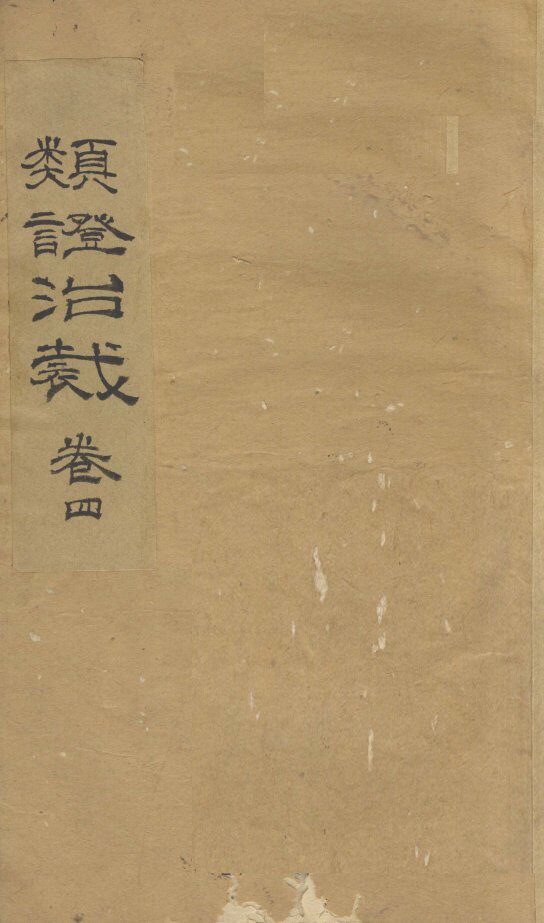 類證治裁
卷四